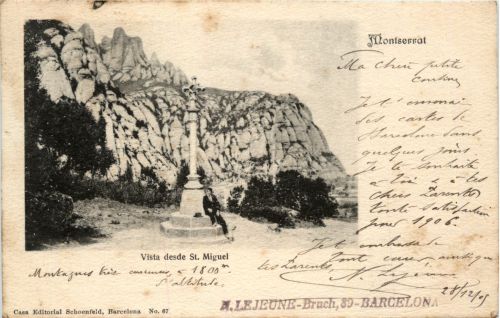 Montserrat
Ma chère petite
cousine
Je t'enverrai
ces cartes de
Barcelone dans
quelques jours
Je te souhaite
à toi & à tes
chers Parents
toute satisfaction
pour 1906.
Je t'embrasse
tout comme, ainsi que
tes Parents,
N. Lejeune
28/12/05
Vista desde St. Miguel
Montagnes très curieuses, à 1800 m
d'altitude.
A. LEJEUNE-Bruch, 89-BARCELONA
Casa Editorial Schoenfeld, Barcelona No. 67